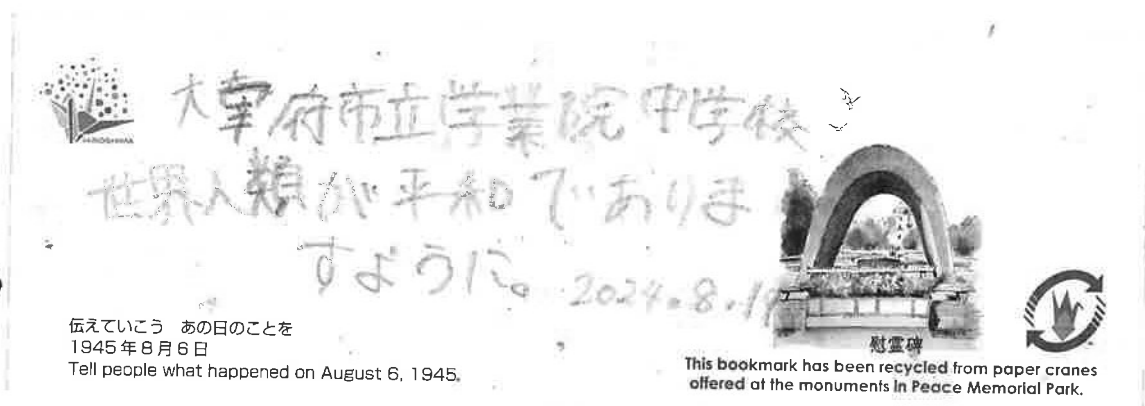 HIROSHIMA
大宰府市立学業院中学校
世界人類が平和でありま
すように。
2024.8.19
伝えていこう　あの日のことを
1945年8月6日
Tell people what happened on August 6, 1945.
慰霊碑
This bookmark has been recycled from paper cranes
offered at the monuments in Peace Memorial Park.